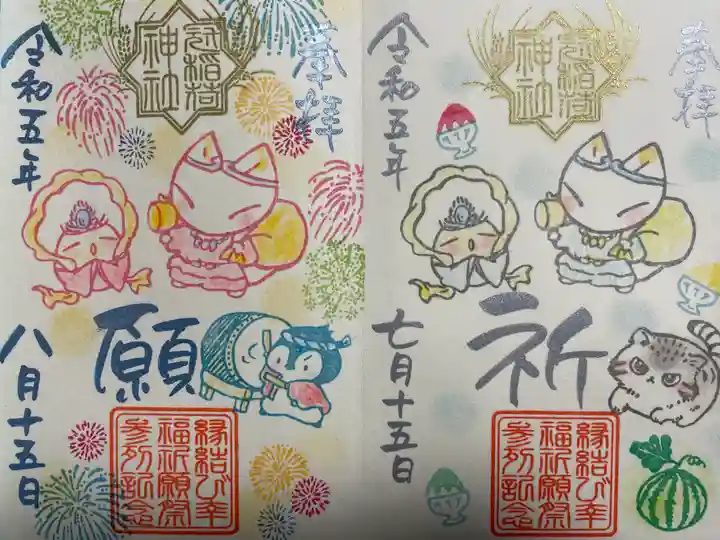 奉拝
冠稲荷
神社
祈
縁結び幸
福祈願祭
参列記念
令和五年
七月十五日
奉拝
冠稲荷
神社
願
縁結び幸
福祈願祭
参列記念
令和五年
八月十五日